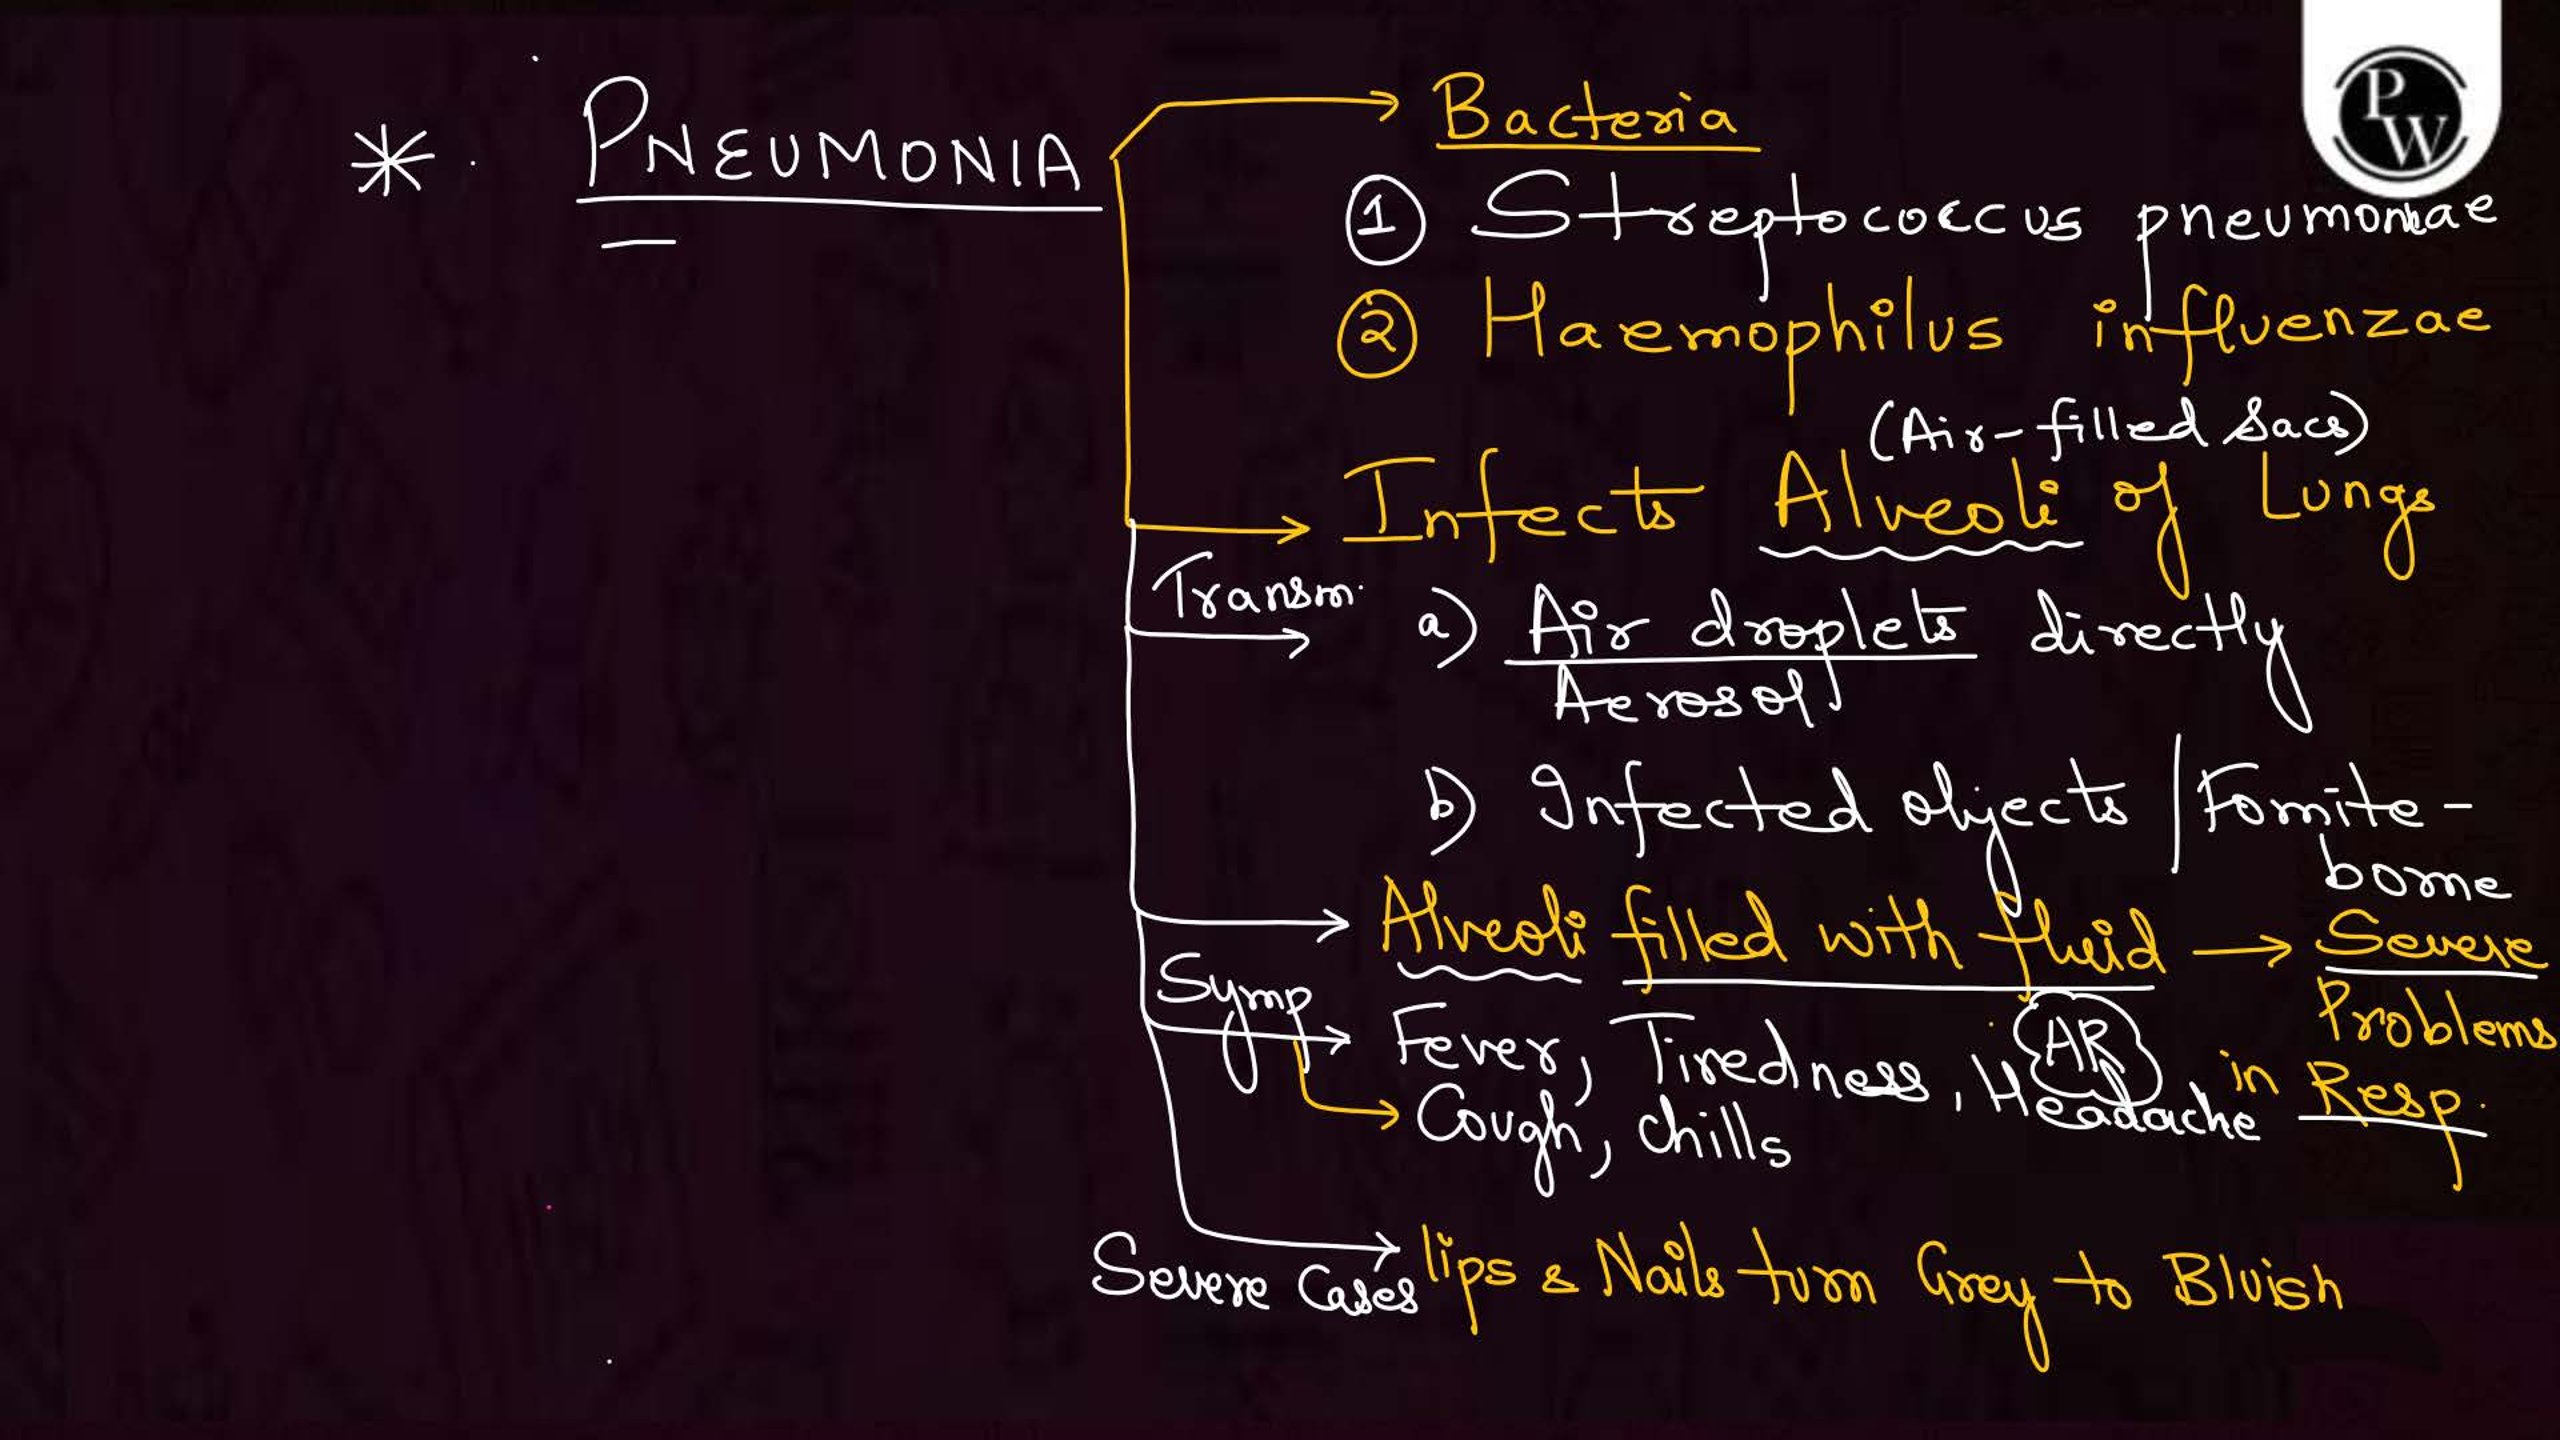 PW
* PNEUMONIA
Bacteria
① Streptococcus pneumoniae
② Haemophilus influenzae
(Air-filled Sacs)
Infects Alveoli of Lungs
Transm.
a) Air droplets directly
Aerosol
b) Infected objects / Fomite-
borne
Alveoli filled with fluid → Severe
Problems
in Resp.
Symp
Fever, Tiredness, Headache
AR
Cough, chills
Severe Cases
lips & Nails turn Grey to Bluish